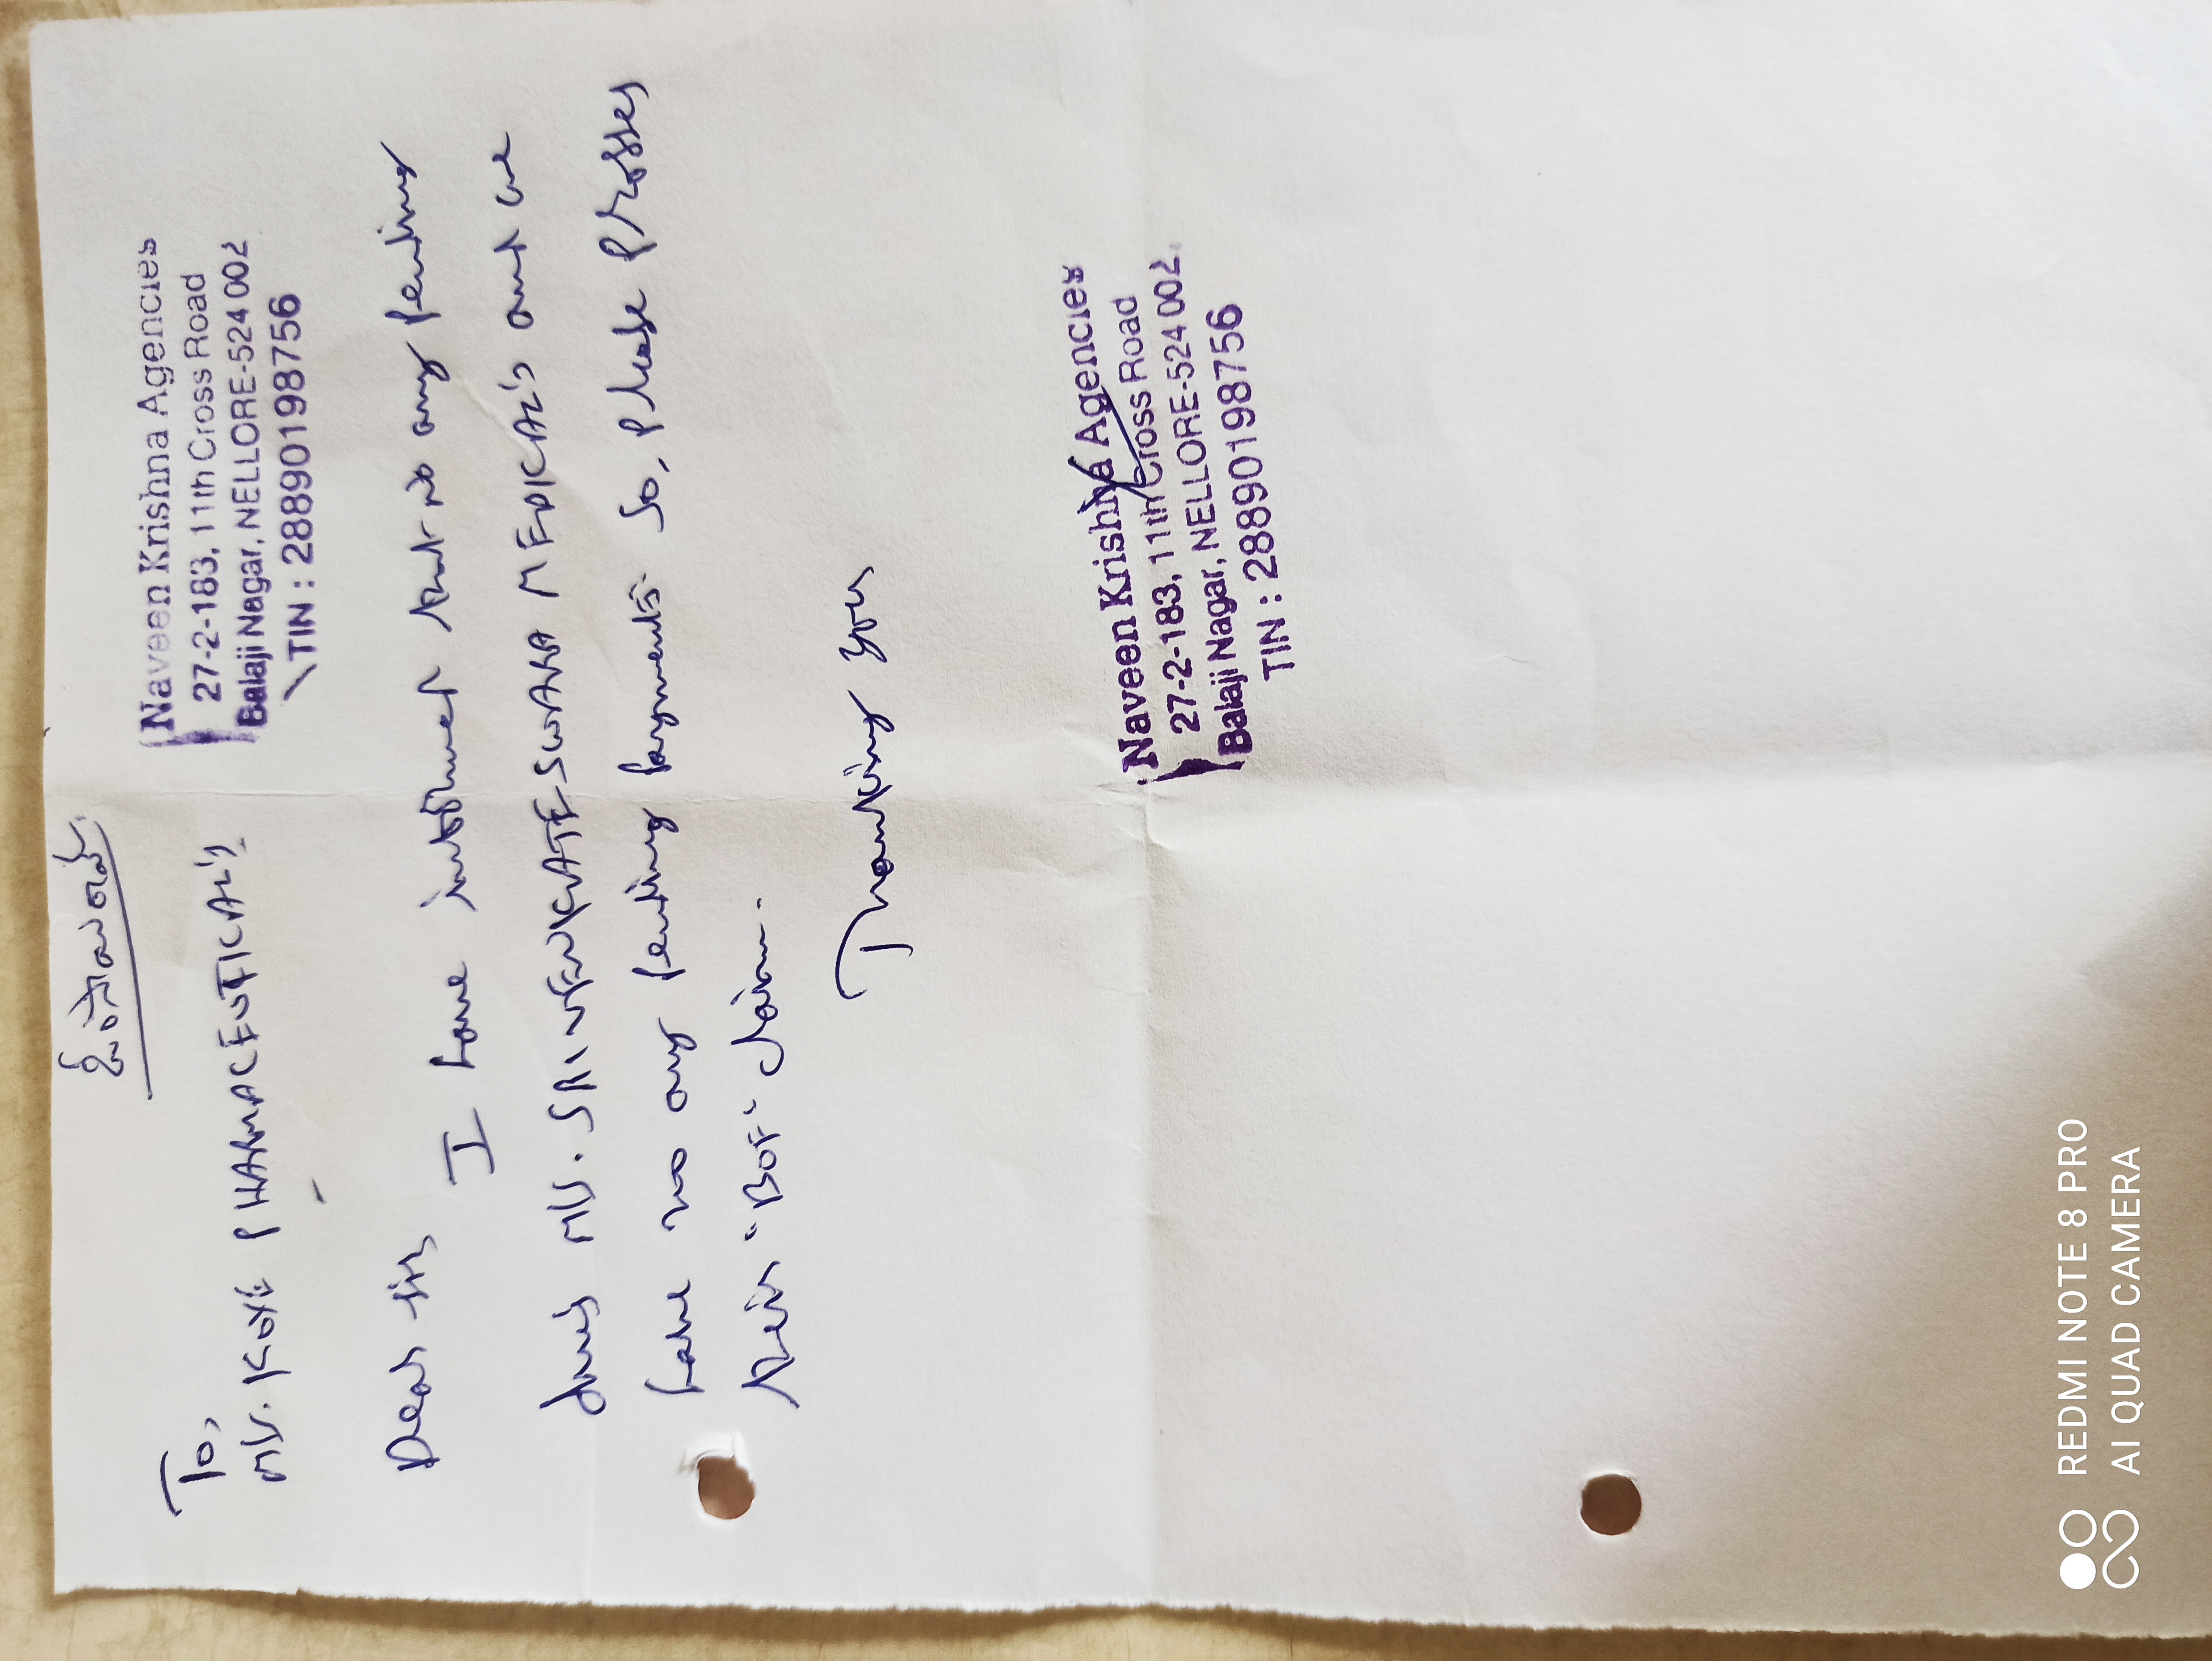 To,
M/s. KOYE PHARMACEUTICAL'S
Naveen Krishna Agencies
27-2-183, 11th Cross Road
Balaji Nagar, NELLORE-524 002
TIN : 28890198756
Dear Sir,
I have informed that no any pending
dues M/s. SRI VENKATESWARA MEDICAL'S and we
have no any pending payments. So, please prosses
their "BOF" claim.
Thanking you
Naveen Krishna Agencies
27-2-183, 11th Cross Road
Balaji Nagar, NELLORE-524 002.
TIN : 28890198756
REDMI NOTE 8 PRO
AI QUAD CAMERA